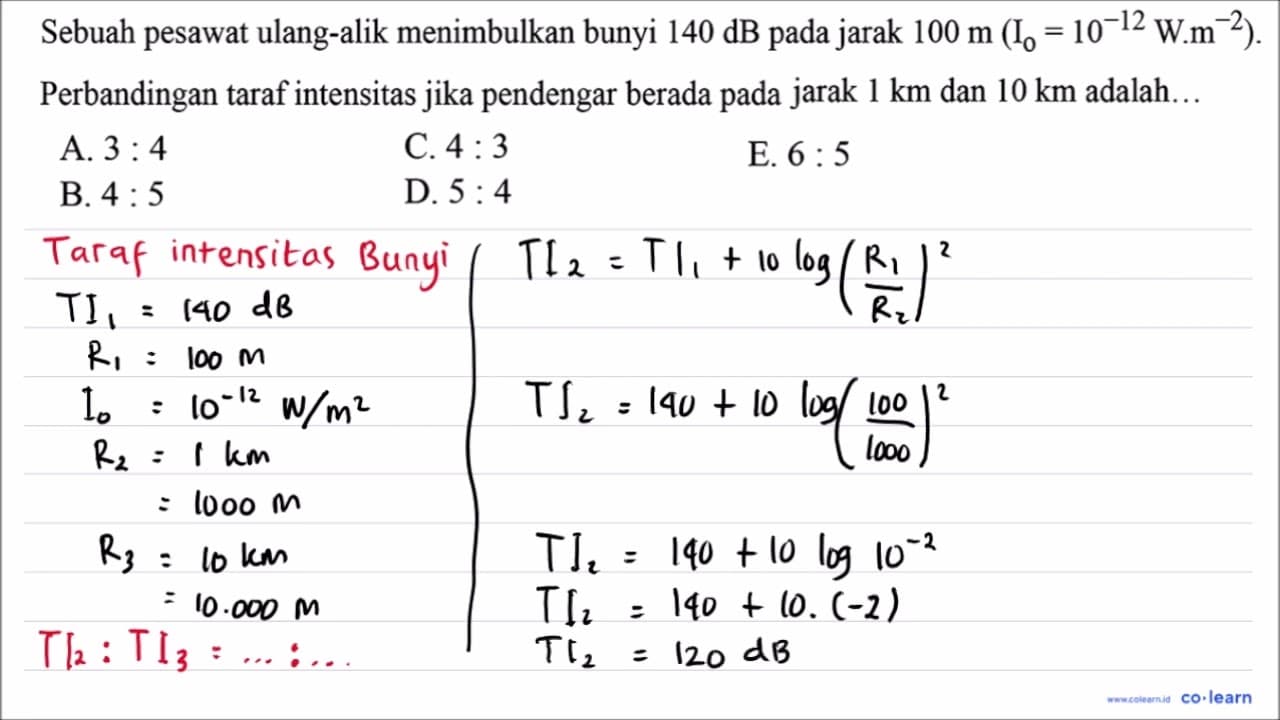 Sebuah pesawat ulang-alik menimbulkan bunyi 140 dB pada jarak 100 m (I₀ = 10⁻¹² W.m⁻²).
Perbandingan taraf intensitas jika pendengar berada pada jarak 1 km dan 10 km adalah...
A. 3 : 4
C. 4 : 3
E. 6 : 5
B. 4 : 5
D. 5 : 4
Taraf intensitas Bunyi
TI₁ = 140 dB
R₁ = 100 m
I₀ = 10⁻¹² W/m²
R₂ = 1 km
= 1000 m
R₃ = 10 km
= 10.000 m
TI₂ : TI₃ = ... : ...
TI₂ = TI₁ + 10 log (R₁/R₂)²
TI₂ = 140 + 10 log (100/1000)²
TI₂ = 140 + 10 log 10⁻²
TI₂ = 140 + 10. (-2)
TI₂ = 120 dB
www.colearn.id co·learn